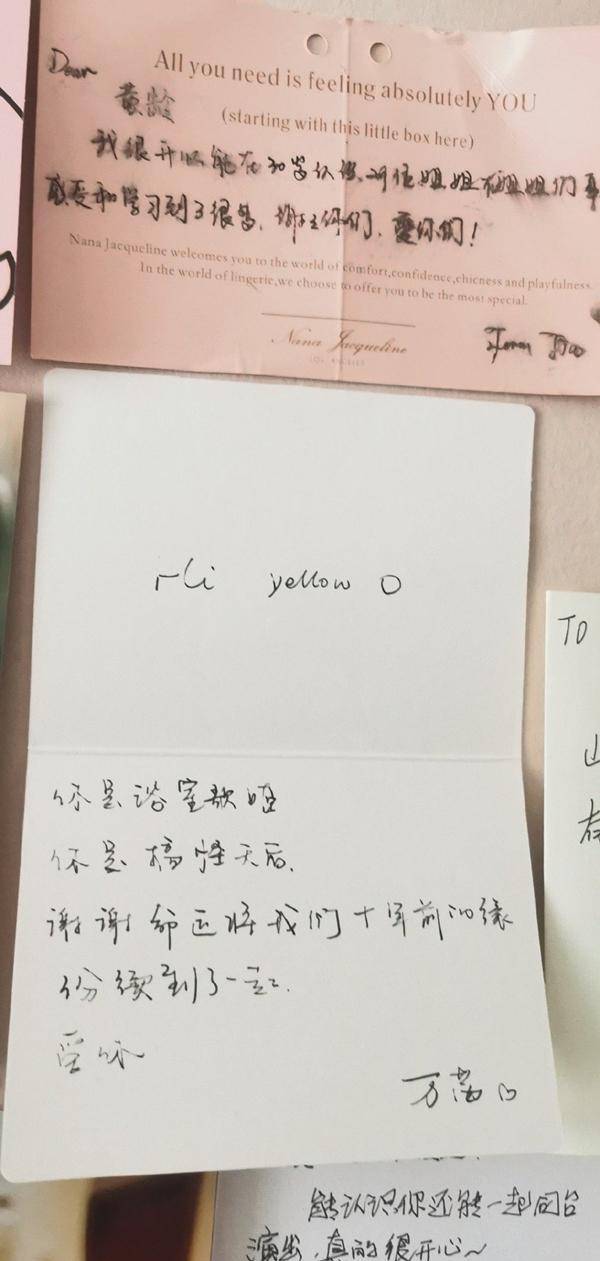 Dear
All you need is feeling absolutely YOU
黄龄
(starting with this little box here)
我很开心能在30岁认识30位姐姐 在姐姐们
感受和学习到了很多，谢谢你们，爱你们！
Nana Jacqueline welcomes you to the world of comfort,confidence,chicness and playfulness.
In the world of lingerie,we choose to offer you to be the most special.
Nana Jacqueline
LOS ANGELES
yellow
你是浴室歌姬
你是搞怪天后.
谢谢命运将我们十年前的缘
份续到了一起.
爱你
万茜
TO
能认识你还能一起同台
演出，真的很开心~